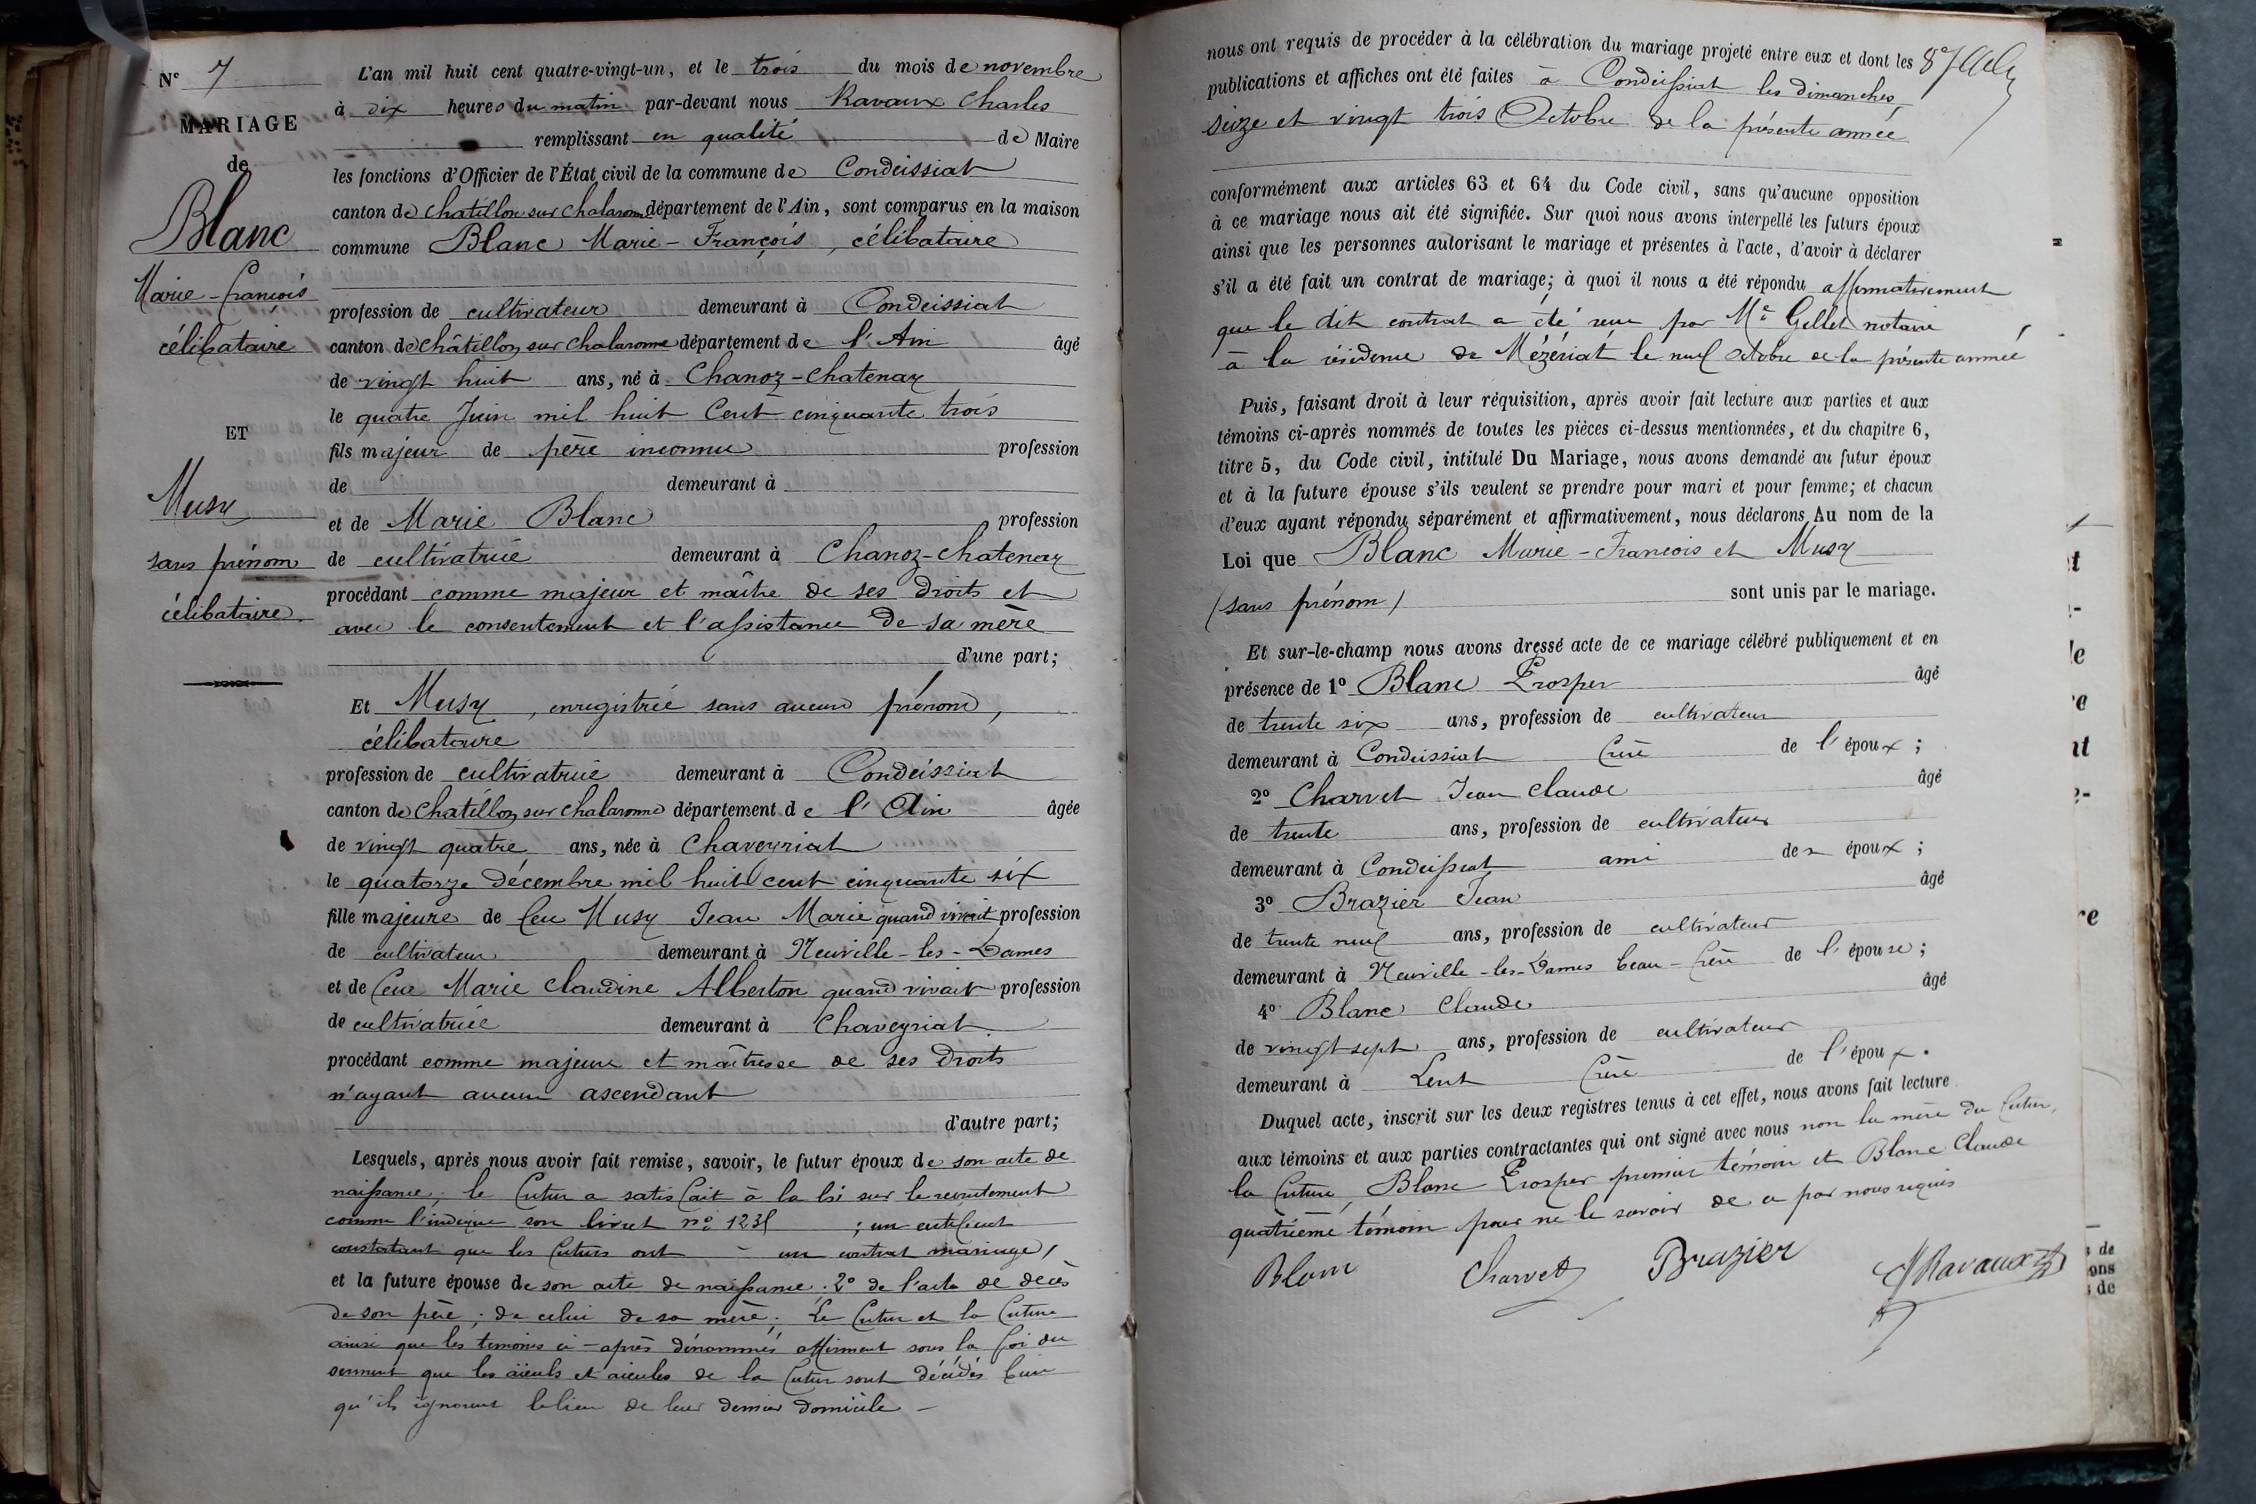 N° 7
MARIAGE
de
Blanc
Marie-François
célibataire
ET
Musy
sans prénom
célibataire
L'an mil huit cent quatre-vingt-un, et le trois du mois de novembre
à dix heures du matin par-devant nous Ravaux Charles
remplissant en qualité de Maire
les fonctions d'Officier de l'État civil de la commune de Condeissiat
canton de Chatillon sur Chalaronne département de l'Ain, sont comparus en la maison
commune Blanc Marie-François, célibataire
profession de cultivateur demeurant à Condeissiat
canton de Châtillon sur Chalaronne département de l'Ain âgé
de vingt huit ans, né à Chanoz-Chatenay
le quatre Juin mil huit Cent cinquante trois
fils majeur de père inconnu profession
de demeurant à
et de Marie Blanc profession
de cultivatrice demeurant à Chanoz-Chatenay
procédant comme majeur et maître de ses droits et
avec le consentement et l'assistance de sa mère
d'une part;
Et Musy, enregistrée sans aucun prénom,
célibataire
profession de cultivatrice demeurant à Condeissiat
canton de Chatillon sur Chalaronne département de l'Ain âgée
de vingt quatre ans, née à Chaveyriat
le quatorze Décembre mil huit cent cinquante six
fille majeure de feu Musy Jean Marie quand vivait profession
de cultivateur demeurant à Neuville-les-Dames
et de feue Marie Claudine Alberton quand vivait profession
de cultivatrice demeurant à Chaveyriat
procédant comme majeure et maîtresse de ses droits
n'ayant aucun ascendant
d'autre part;
Lesquels, après nous avoir fait remise, savoir, le futur époux de son acte de
naissance, le futur a satisfait à la loi sur le recrutement
comme l'indique son livret n° ; un certificat
constatant que les futurs ont un contrat mariage,
et la future épouse de son acte de naissance : 2° de l'acte de décès
de son père ; de celui de sa mère ; Le futur et la future
ainsi que les temoins ci-après dénommés affirment sous la foi du
serment que les aïeuls et aïeules de la futur sont décédés
qu'ils ignorent le lieu de leur dernier domicile
nous ont requis de procéder à la célébration du mariage projeté entre eux et dont les
publications et affiches ont été faites à Condeissiat les dimanches
seize et vingt trois Octobre de la présente année
conformément aux articles 63 et 64 du Code civil, sans qu'aucune opposition
à ce mariage nous ait été signifiée. Sur quoi nous avons interpellé les futurs époux
ainsi que les personnes autorisant le mariage et présentes à l'acte, d'avoir à déclarer
s'il a été fait un contrat de mariage; à quoi il nous a été répondu affirmativement
que le dit contrat a été reçu par Me Gellet notaire
à la résidence de Mézériat le neuf Octobre de la présente année
Puis, faisant droit à leur réquisition, après avoir fait lecture aux parties et aux
témoins ci-après nommés de toutes les pièces ci-dessus mentionnées, et du chapitre 6,
titre 5, du Code civil, intitulé Du Mariage, nous avons demandé au futur époux
et à la future épouse s'ils veulent se prendre pour mari et pour femme; et chacun
d'eux ayant répondu séparément et affirmativement, nous déclarons Au nom de la
Loi que Blanc Marie-François et Musy
(sans prénom) sont unis par le mariage.
Et sur-le-champ nous avons dressé acte de ce mariage célébré publiquement et en
présence de 1° Blanc Prosper âgé
de trente six ans, profession de cultivateur
demeurant à Condeissiat frère de l'époux ;
2° Charvet Jean Claude âgé
de trente ans, profession de cultivateur
demeurant à Condeissiat ami des époux ;
3° Brazier Jean âgé
de trente neuf ans, profession de cultivateur
demeurant à Neuville-les-Dames beau-frère de l'épouse ;
4° Blanc Claude âgé
de vingt sept ans, profession de cultivateur
demeurant à Lent frère de l'époux.
Duquel acte, inscrit sur les deux registres tenus à cet effet, nous avons fait lecture
aux témoins et aux parties contractantes qui ont signé avec nous non la mère du futur,
la future, Blanc Prosper premier témoin et Blanc Claude
quatrième témoin pour ne le savoir de ce par nous requis
Blanc Charvet Brazier Ravaux